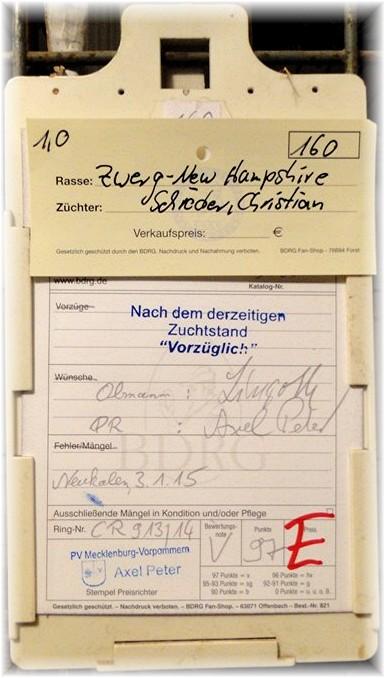 1,0
160
Rasse: Zwerg-New Hampshire
Züchter: Schröder, Christian
Verkaufspreis: €
Gesetzlich geschützt durch den BDRG. Nachdruck und Nachahmung verboten. BDRG Fan-Shop - 76694 Forst
www.bdrg.de Katalog-Nr.
Vorzüge
Nach dem derzeitigen
Zuchtstand
"Vorzüglich"
Wünsche
Obmann :
PR : Axel Peter
BDRG
Fehler/Mängel
Neukalen, 3.1.15
Ausschließende Mängel in Kondition und/oder Pflege
Ring-Nr. CR 913 J14
Bewertungs-
note
V
Punkte
97
Preis
E
PV Mecklenburg-Vorpommern
Axel Peter
Stempel Preisrichter
97 Punkte = v 96 Punkte = hv
95-93 Punkte = sg 92-91 Punkte = g
90 Punkte = b 0 Punkte = u, o. B.
Gesetzlich geschützt. – Nachdruck verboten. – BDRG Fan-Shop. – 63071 Offenbach – Best.-Nr. 821